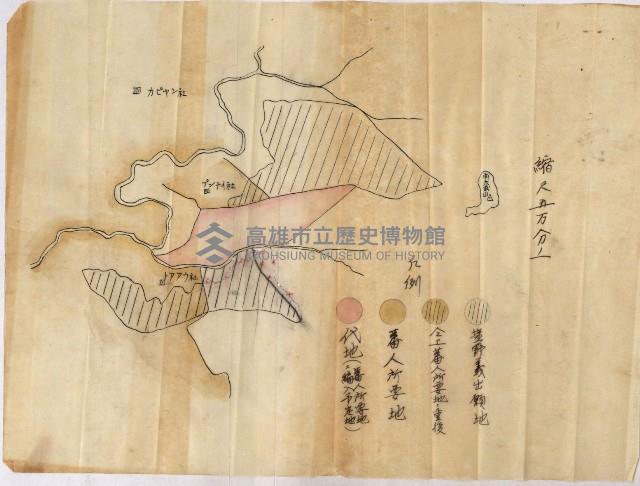 カピヤン社
プンテイ社
トアアウ社
南大武山
縮尺五万分ノ一
凡例
高雄市立歷史博物館
KAOHSIUNG MUSEUM OF HISTORY
塩野義出願地
仝上蕃人所要地ト重複
蕃人所要地
代地(蕃人所要地ニ編入予定地)